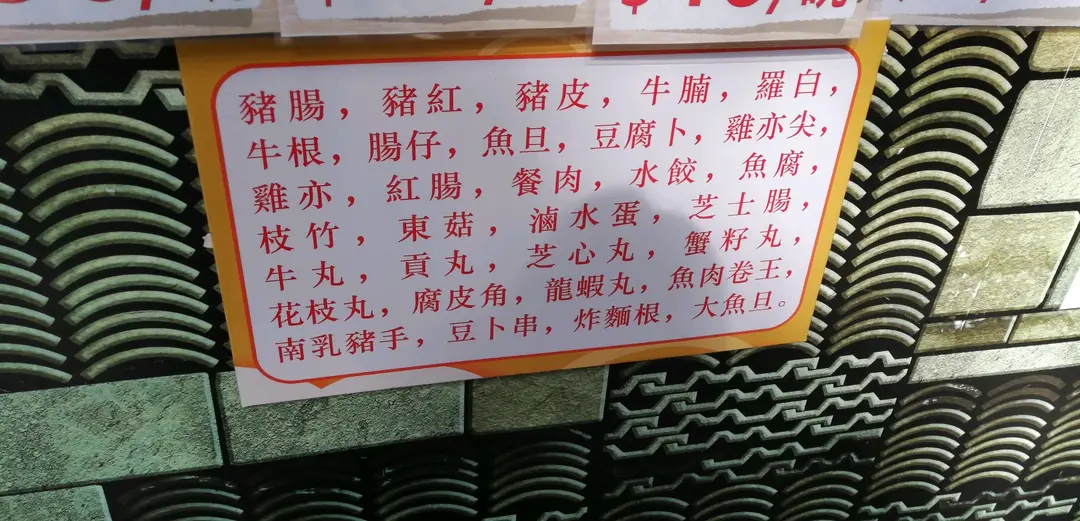 豬腸，豬紅，豬皮，牛腩，羅白，
牛根，腸仔，魚旦，豆腐卜，雞亦尖，
雞亦，紅腸，餐肉，水餃，魚腐，
枝竹，東菇，滷水蛋，芝士腸，
牛丸，貢丸，芝心丸，蟹籽丸，
花枝丸，腐皮角，龍蝦丸，魚肉卷王，
南乳豬手，豆卜串，炸麵根，大魚旦。